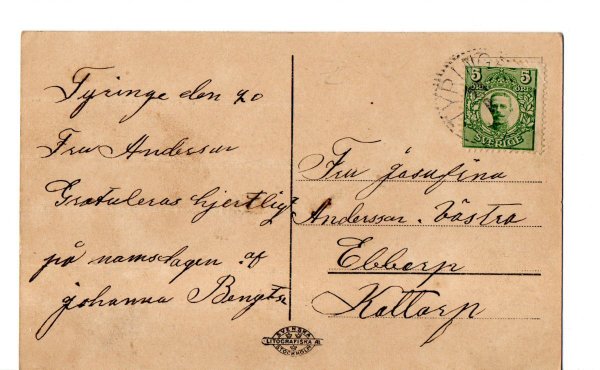 Tyringe den 20
Fru Anderssar
Gratuleras hjertligt
på namsdagen af
johanna Bengts
Fru josafina
Anderssar. Västra
Ebbarp
Kattarp
TYRING
5 5
ÖRE
SVERIGE
SVENSKA
LITOGRAFISKA A.
STOCKHOLM